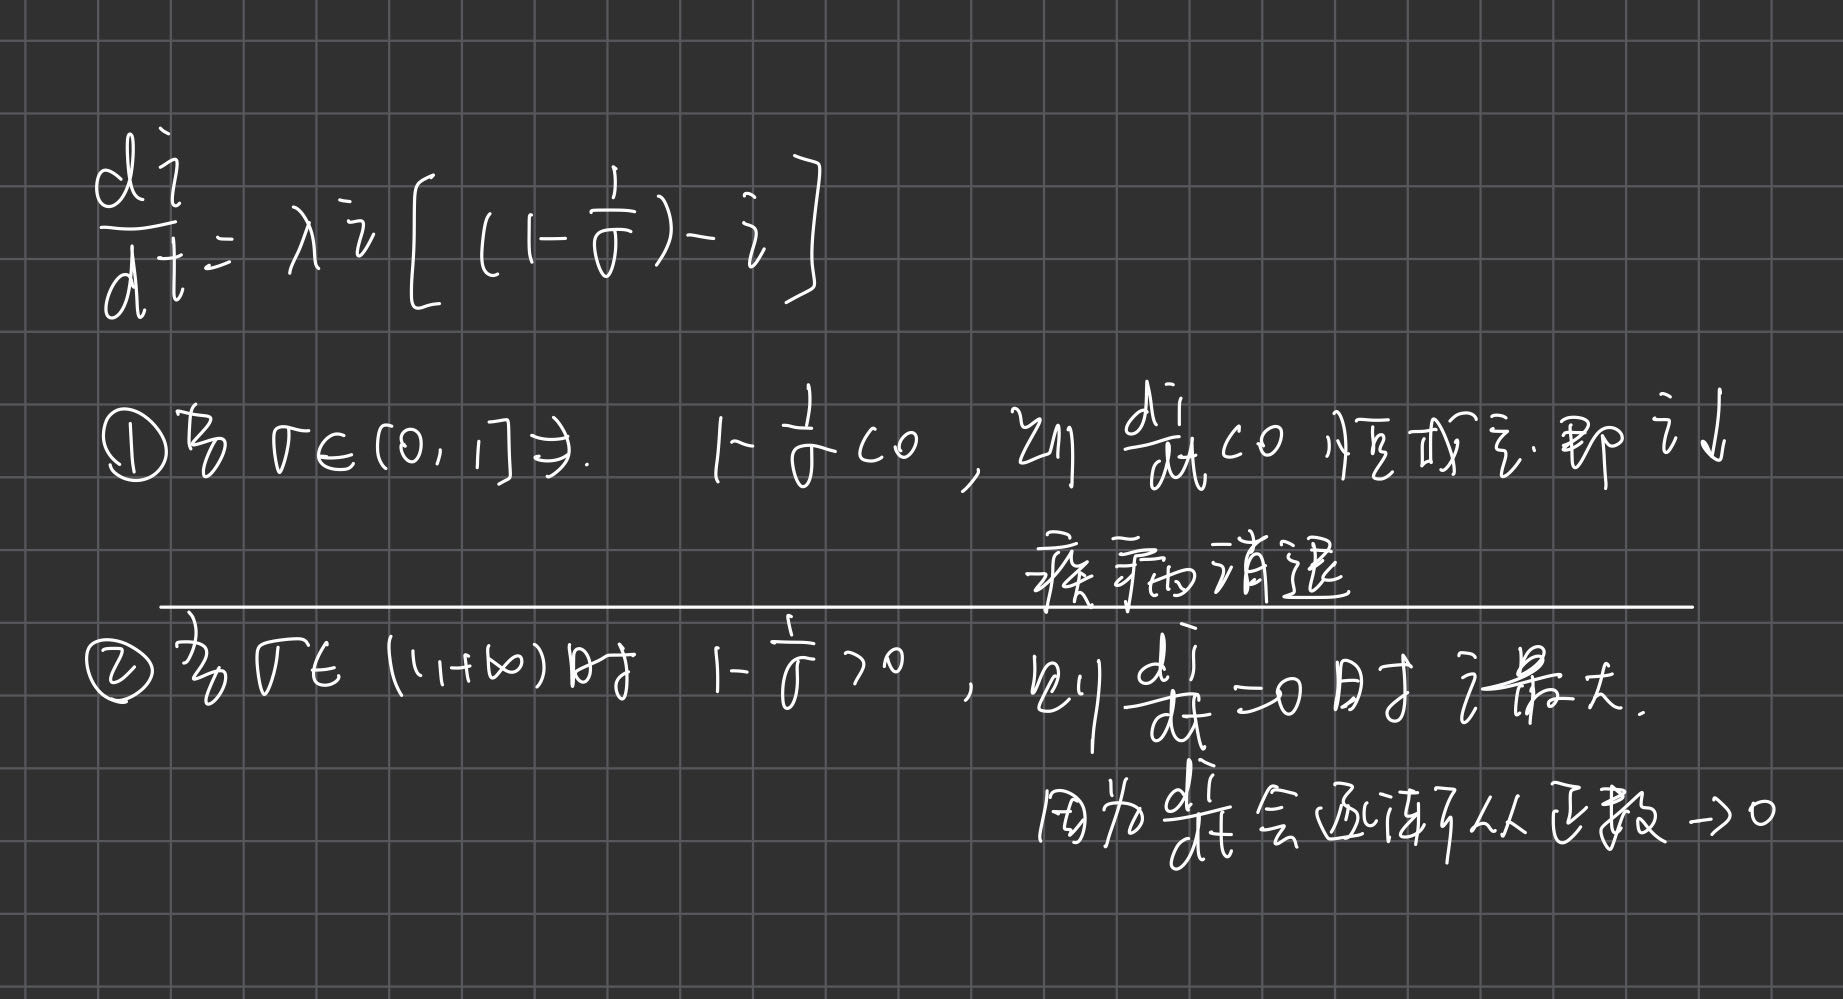 di/dt = λi[(1-1/σ)-i]
①当 σ∈(0,1]⇒. 1-1/σ<0, 则 di/dt<0 恒成立. 即 i↓
疾病消退
②当 σ∈(1,+∞)时 1-1/σ>0, 则 di/dt=0时 i最大.
因为 di/dt 会逐渐从正数→0